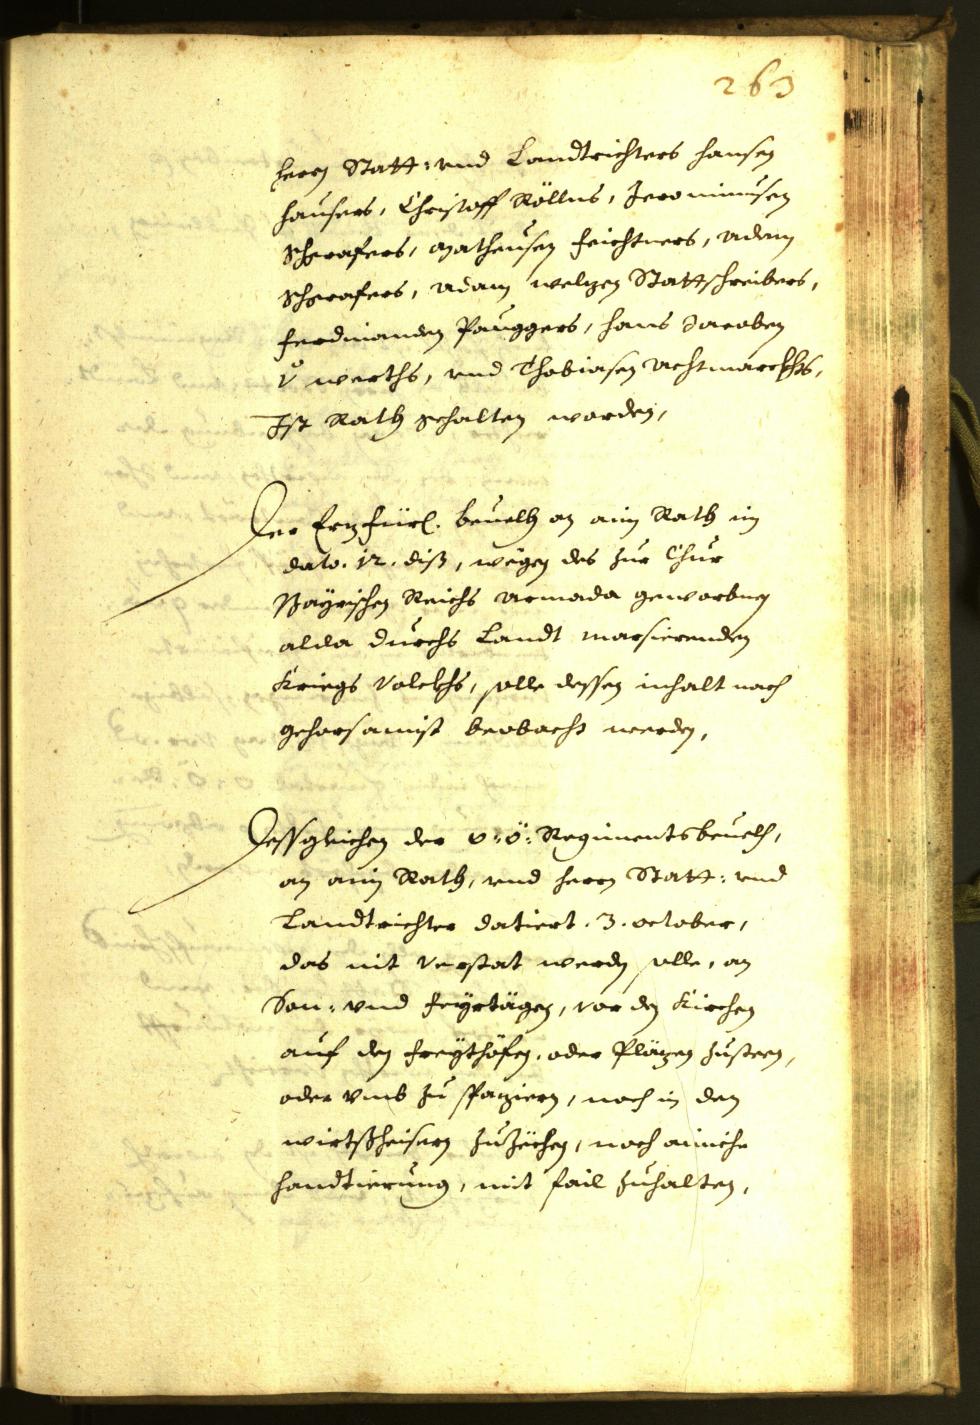 263
herrn Statt: vnd Landtrichters Hansen
Hausers, Christoff Röllns, Jeronimusen
Schgrafers, Matheusen Feichtners, Adam
Schgrafers, Adam Welzen Stattschreibers,
Ferdinanden Paugggers, Hans Jacoben
werths, vnd Thobiasen Achtmarckhts,
Ist Rath gehalten worden,
Der Erzfürl. beuelh an ain Rath im
dato. 12. diß, wegen des zur Chur
Bayrischen Reichs Armada geworbnen
alda durchs Landt marsierenden
Kriegs Volckhs, solle dessen inhalt nach
gehorsamist beobacht werden,
Dessgleichen der o: ö: Regimentsbeuelh,
an ain Rath, vnd herrn Statt: vnd
Landtrichter datiert. 3. october,
das nit verstat werden solle, an
Son: vnd Feyrtägen, vor den Kirchen
auf den Freythöfen, oder Pläzen zusteen,
oder vmb zu spaziern, noch in den
wirtsheisern zu zechen, noch ainiche
handtierung, mit fail zuhalten,